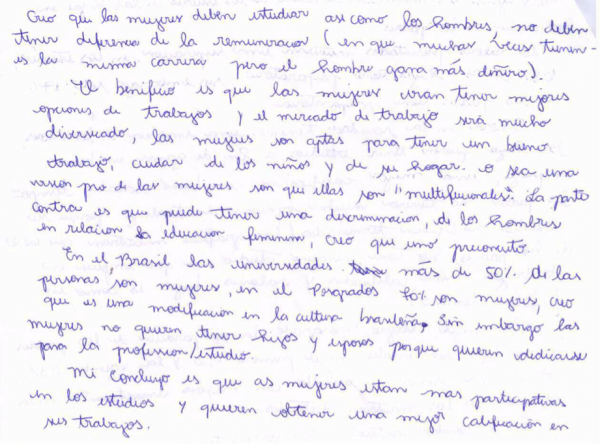 Creo que las mujeres deben estudiar asi como los hombres, no deben
tener diferencia de la remuneracion (en que muchas veces tienen-
es la misma carrera pero el hombre gana más diñero).
El benificio es que las mujeres viran tener mejores
opciones de trabajos y el mercado de trabajo será mucho
diversicado, las mujeres son aptas para tener un bueno
trabajo, cuidar de los niños y de su hogar. o sea una
version pro de las mujeres son que ellas son "multifucionales". La parte
contra es que puede tener una descriminacion, de los hombres
en relacion la educacion femenina, creo que uno preconcito.
En el Brasil las universidades más de 50% de las
personas son mujeres, en el Posgrados 70% son mujeres, creo
que es una modificacion en la cultura brasileña. Sin embargo las
mujeres no quieren tener hijos y esposos porque quieren dedicarse
para la profession/estudio.
Mi concluyo es que as mujeres estan mas participativas
en los estudios y quieren obtener una mejor calificación en
sus trabajos.